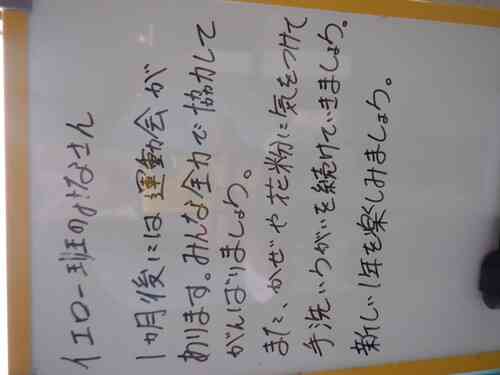 イエロー班のみなさん
1カ月後には運動会が
あります。みんな全力で協力して
がんばりましょう。
また、かぜや花粉に気をつけて
手洗いうがいを続けていきましょう。
新しい1年を楽しみましょう。